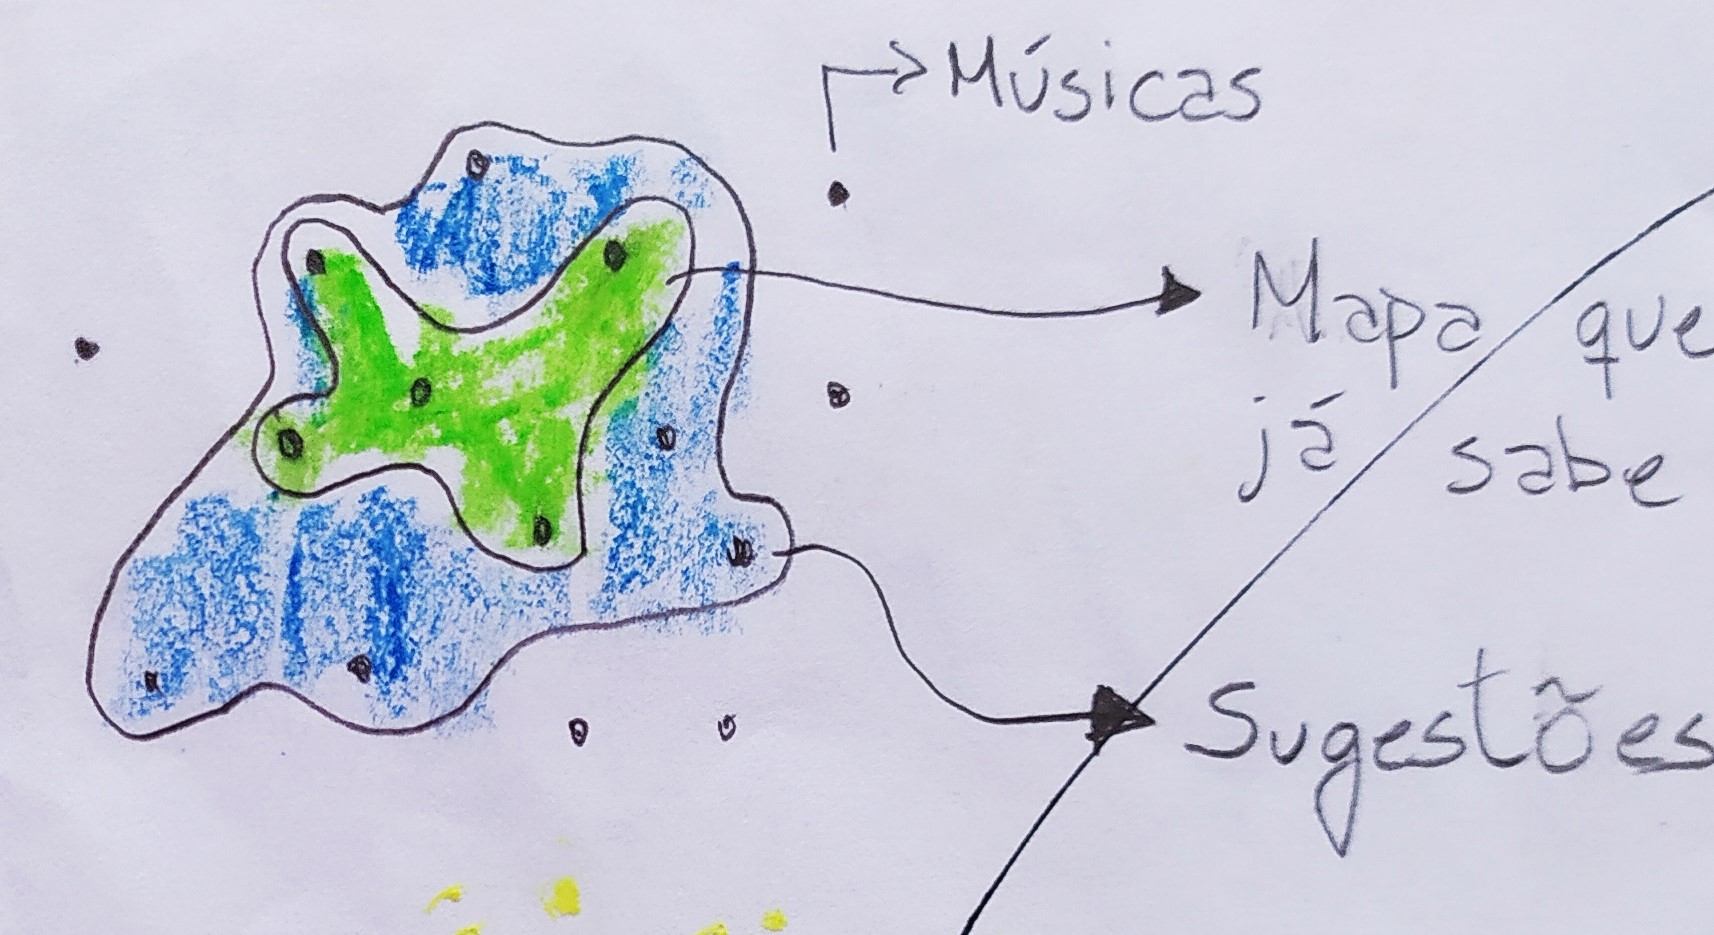 Músicas
Mapa que
já sabe
Sugestões